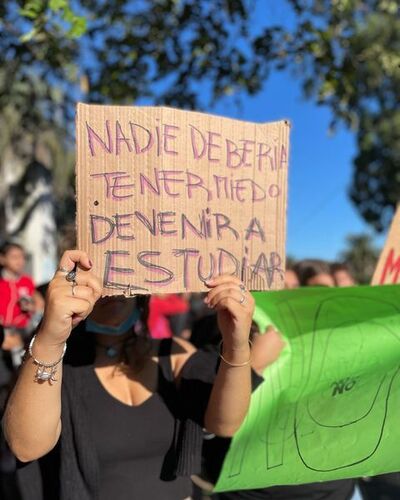 NADIE DEBERIA
TENER MIEDO
DE VENIR A
ESTUDIAR
NO
NO
M